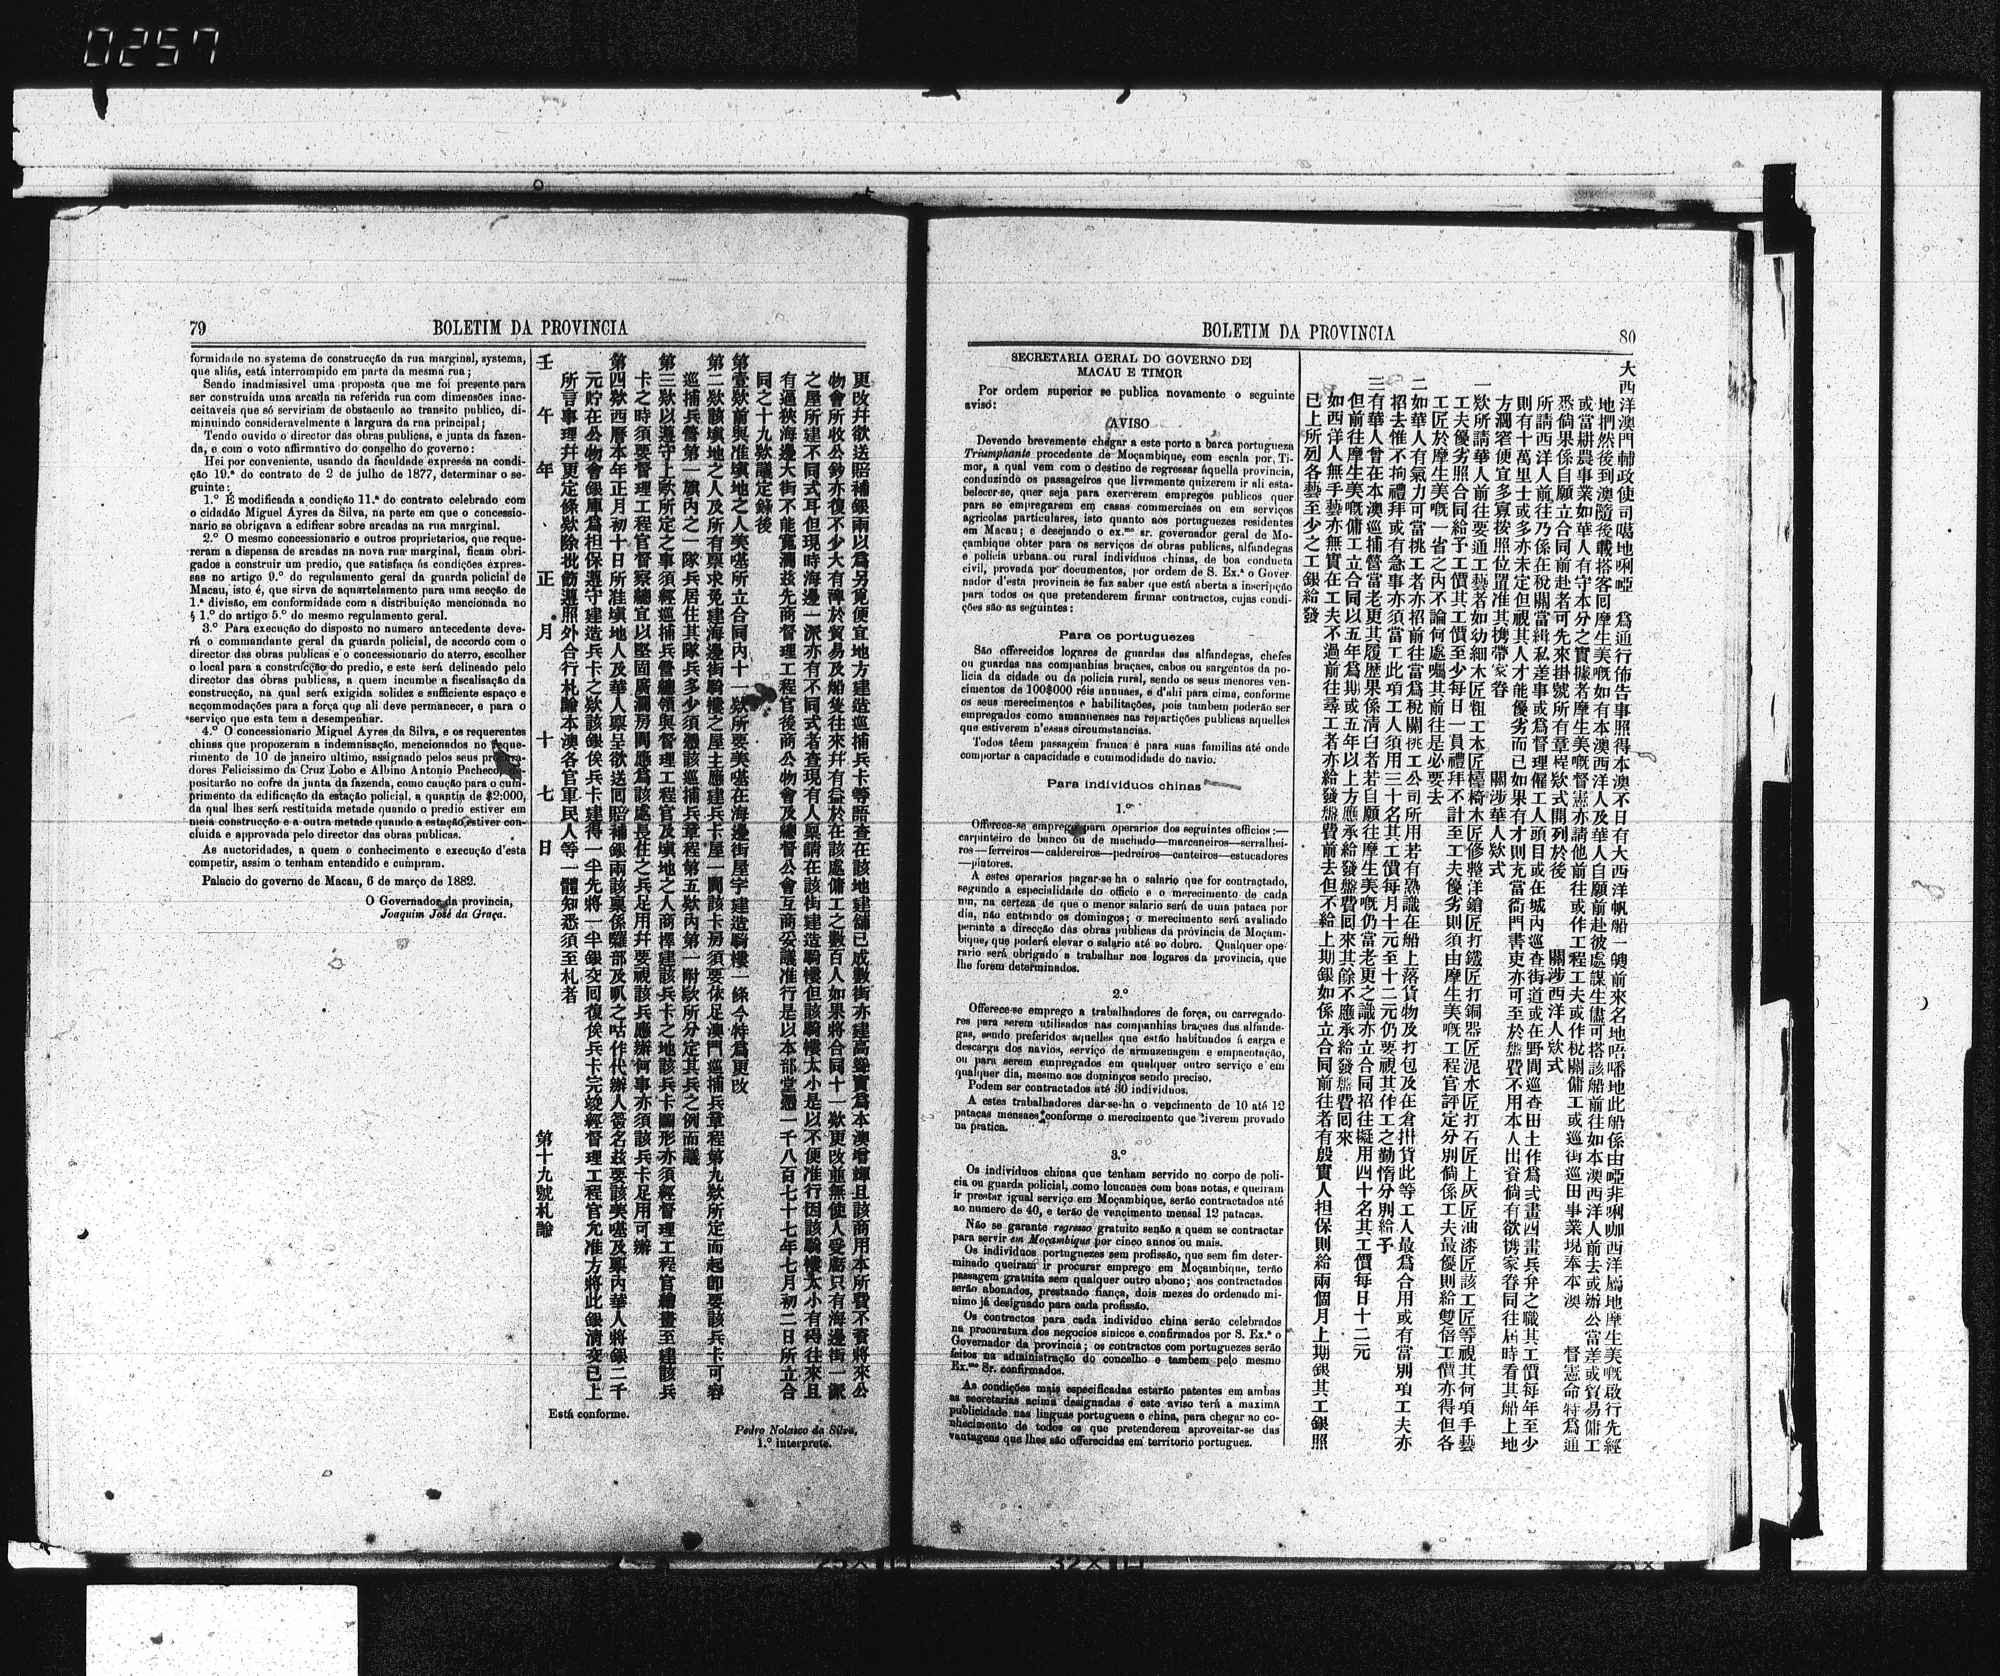 0257
79
BOLETIM DA PROVINCIA
formidade no systema de construcção da rua marginal, systema,
que aliás, está interrompido em parte da mesma rua;
Sendo inadmissivel uma proposta que me foi presente para
ser construida uma arcada na referida rua com dimensões inac-
ceitaveis que só serviriam de obstaculo ao transito publico, di-
minuindo consideravelmente a largura da rua principal;
Tendo ouvido o director das obras publicas, e junta da fazen-
da, e com o voto affirmativo do conselho do governo:
Hei por conveniente, usando da faculdade expressa na condi-
ção 19.ª do contrato de 2 de julho de 1877, determinar o se-
guinte:
1.º É modificada a condição 11.ª do contrato celebrado com
o cidadão Miguel Ayres da Silva, na parte em que o concessio-
nario se obrigava a edificar sobre arcadas na rua marginal.
2.º O mesmo concessionario e outros proprietarios, que reque-
reram a dispensa de arcadas na nova rua marginal, ficam obri-
gados a construir um predio, que satisfaça ás condições expres-
sas no artigo 9.º do regulamento geral da guarda policial de
Macau, isto é, que sirva de aquartelamento para uma secção de
1.ª divisão, em conformidade com a distribuição mencionada no
§ 1.º do artigo 5.º do mesmo regulamento geral.
3.º Para execução do disposto no numero antecedente deve-
rá o commandante geral da guarda policial, de accordo com o
director das obras publicas e o concessionario do aterro, escolher
o local para a construcção do predio, e este será delineado pelo
director das obras publicas, a quem incumbe a fiscalisação da
construcção, na qual será exigida solidez e sufficiente espaço e
accommodações para a força que ali deve permanecer, e para o
serviço que esta tem a desempenhar.
4.º O concessionario Miguel Ayres da Silva, e os requerentes
chinas que propozeram a indemnisação, mencionados no reque-
rimento de 10 de janeiro ultimo, assignado pelos seus procura-
dores Felicissimo da Cruz Lobo e Albino Antonio Pacheco,
positarão no cofre da junta da fazenda, como caução para o cum-
primento da edificação da estação policial, a quantia de $2:000,
da qual lhes será restituida metade quando o predio estiver em
meia construcção e a outra metade quando a estação estiver con-
cluida e approvada pelo director das obras publicas.
As auctoridades, a quem o conhecimento e execução d'esta
competir, assim o tenham entendido e cumpram.
Palacio do governo de Macau, 6 de março de 1882.
O Governador da provincia,
Joaquim José da Graça.
更改幷欲送賠補銀兩以爲另覓便宜地方建造巡捕兵卡等語查在該地建舖已成數街亦建高聳實爲本澳增輝且該商用本所費不賚將來公
物會所收公鈔亦復不少大有裨於貿易及船隻往來幷有益於在該處傭工之數百人如果將合同十一欵更改並無使人受虧只有海邊街一派
之屋所建不同式耳但現時海邊一派亦有不同式者查現有人稟請在該街建造騎樓但該騎樓大小是以不便准行因該騎樓太小有碍往來且
有逼狹海邊大街不能寬濶茲先商督理工程官後商公物會及總督公會互商妥議准行是以本部堂憑一千八百七十七年七月初二日所立合
同之十九欵議定錄後
第壹欵前與准塡地之人美噻所立合同內十一欵所要美噻在海邊街屋宇建造騎樓一條今特爲更改
第二欵該塡地之人及所有稟求免建海邊街騎樓之屋主應建兵卡屋一間該卡房須要依足澳門巡捕兵章程第九欵所定而起卽要該兵卡可容
巡捕兵營第一旗內之一隊兵居住其隊兵多少須憑該巡捕兵章程第五欵內第一附欵所分定其兵之例而議
第三欵以遵守上欵所定之事須經巡捕兵營總領與督理工程官及塡地之人商擇建該兵卡之地該兵卡圖形亦須經督理工程官繪畫至建該兵
卡之時須要督理工程官督察總宜以堅固廣濶房間應爲該處長住之兵足用幷要視該兵應辦何事亦須該兵卡足用可辦
第四欵西曆本年正月初十日所准塡地人及華人稟呈欲送囘賠補銀兩該稟係囉部及叭之咕作代辦人簽名茲要該美噻及稟內華人將銀二千
元貯在公物會銀庫爲担保遵守建造兵卡之欵該銀俟兵卡建得一半先將一半銀交囘復俟兵卡完竣經督理工程官允准方將此銀淸交已上
所言事理幷更定條欵除批飭遵照外合行札諭本澳各官軍民人等一體知悉須至札者
壬午年正月十七日 第十九號札諭
Está conforme.
Pedro Nolasco da Silva,
1.º interprete.
BOLETIM DA PROVINCIA
80
SECRETARIA GERAL DO GOVERNO DE
MACAU E TIMOR
Por ordem superior se publica novamente o seguinte
aviso:
AVISO
Devendo brevemente chegar a este porto a barca portugueza
Triumphante procedente de Moçambique, com escala por Ti-
mor, a qual vem com o destino de regressar áquella provincia,
conduzindo os passageiros que livremente quizerem ir ali esta-
belecer-se, quer seja para exercerem empregos publicos quer
para se empregarem em casas commerciaes ou em serviços
agricolas particulares, isto quanto aos portuguezes residentes
em Macau; e desejando o ex.mo sr. governador geral de Mo-
çambique obter para os serviços de obras publicas, alfandegas
e policia urbana ou rural individuos chinas, de boa conducta
civil, provada por documentos, por ordem de S. Ex.ª o Gover-
nador d'esta provincia se faz saber que está aberta a inscripção
para todos os que pretenderem firmar contractos, cujas condi-
ções são as seguintes:
Para os portuguezes
São offerecidos logares de guardas das alfandegas, chefes
ou guardas nas companhias braçaes, cabos ou sargentos da po-
licia da cidade ou da policia rural, sendo os seus menores ven-
cimentos de 100$000 réis annuaes, e d'ali para cima, conforme
os seus merecimentos e habilitações, pois tambem poderão ser
empregados como amanuenses nas repartições publicas aquelles
que estiverem n'essas circumstancias.
Todos têem passagem franca e para suas familias até onde
comportar a capacidade e commodidade do navio.
Para individuos chinas
1.º
Offerece-se emprego para operarios dos seguintes officios:—
carpinteiro de banco ou de machado—marceneiros—serralhei-
ros—ferreiros—caldereiros—pedreiros—canteiros—estucadores
—pintores.
A estes operarios pagar-se ha o salario que for contractado,
segundo a especialidade do officio e o merecimento de cada
um, na certeza de que o menor salario será de uma pataca por
dia, não entrando os domingos; o merecimento será avaliado
perante a direcção das obras publicas da provincia de Moçam-
bique, que poderá elevar o salario até ao dobro. Qualquer ope-
rario será obrigado a trabalhar nos logares da provincia, que
lhe forem determinados.
2.º
Offerece-se emprego a trabalhadores de força, ou carregado-
res para serem utilisados nas companhias braçaes das alfande-
gas, sendo preferidos aquelles que estão habituados á carga e
descarga dos navios, serviço de armazenagem e empacotação,
ou para serem empregados em qualquer outro serviço e em
qualquer dia, mesmo aos domingos sendo preciso.
Podem ser contractados até 30 individuos.
A estes trabalhadores dar-se-ha o vencimento de 10 até 12
patacas mensaes conforme o merecimento que tiverem provado
na pratica.
3.º
Os individuos chinas que tenham servido no corpo de poli-
cia ou guarda policial, como loucanes com boas notas, e queiram
ir prestar igual serviço em Moçambique, serão contractados até
ao numero de 40, e terão de vencimento mensal 12 patacas.
Não se garante regresso gratuito senão a quem se contractar
para servir em Moçambique por cinco annos ou mais.
Os individuos portuguezes sem profissão, que sem fim deter-
minado queiram ir procurar emprego em Moçambique, terão
passagem gratuita sem qualquer outro abono; aos contractados
serão abonados, prestando fiança, dois mezes do ordenado mi-
nimo já designado para cada profissão.
Os contractos para cada individuo china serão celebrados
na procuratura dos negocios sinicos e confirmados por S. Ex.ª o
Governador da provincia; os contractos com portuguezes serão
feitos na administração do concelho e tambem pelo mesmo
Ex.mo Sr. confirmados.
As condições mais especificadas estarão patentes em ambas
as secretarias acima designadas e este aviso terá a maxima
publicidade nas linguas portugueza e china, para chegar ao co-
nhecimento de todos os que pretenderem aproveitar-se das
vantagens que lhes são offerecidas em territorio portuguez.
大西洋澳門輔政使司噶地唎啞 爲通行佈告事照得本澳不日有大西洋帆船一號前來名地唔嗜地此船係由啞非唎咖西洋屬地摩生美嘅啟行先經
地捫然後到澳隨後載搭客囘摩生美嘅如有本澳西洋人及華人自願前赴彼處謀生儘可搭該船前往如本澳西洋人前去或辦公當差或貿易傭工
或當耕農事業如華人有守本分之實據者摩生美嘅督憲亦請他前往或作工程工夫或作稅關傭工或巡街巡田事業現奉本澳 督憲命特爲通
悉倘果係自願立合同前赴者可先來掛號所有章程欵式開列於後 關涉西洋人欵式
所請西洋人前往乃係在稅關當緝私差事或爲督理僱工人頭目或在城內巡查街道或在野間巡查田土作爲弍畫四畫兵弁之職其工價每年至少
則有十萬里士或多亦未定但視其人才能優劣而已如果有才則充當衙門書吏亦可至於盤費不用本人出資倘有欲携家眷同往屆時看其船上地
方濶窄便宜多寡按照位置准其携帶家眷 關涉華人欵式
一欵所請華人前往要通工藝者如幼細木匠粗工木匠檯椅木匠修整洋鎗匠打鐵匠打銅器匠泥水匠打石匠上灰匠油漆匠該工匠等視其何項手藝
工夫優劣照合同給予工價其工價至少每日一員禮拜不計至工夫優劣則須由摩生美嘅工程官評定分別倘係工夫最優則給雙倍工價亦得但各
工匠於摩生美嘅一省之內不論何處囑其前往是必要去
二如華人有氣力可當挑工者亦招前往當爲稅關挑工公司所用若有熟識在船上落貨物及打包及在倉拼貨此等工人最爲合用或有當別項工夫亦
招去惟不拘禮拜或有急事亦須當工此項工人須用三十名其工價每月十元至十二元仍要視其作工之勤惰分別給予
三有華人曾在本澳巡捕營當老更其履歷果係淸白者若自願往摩生美嘅仍當老更之識亦立合同招往擬用四十名其工價每日十二元
但前往摩生美嘅傭工立合同以五年爲期或五年以上方應承給發盤費囘來其餘不應承給發盤費囘來
如西洋人無手藝亦無實在工夫不過前往尋工者亦給發盤費前去但不給上期銀如係立合同前往者有殷實人担保則給兩個月上期銀其工銀照
已上所列各藝至少之工銀給發